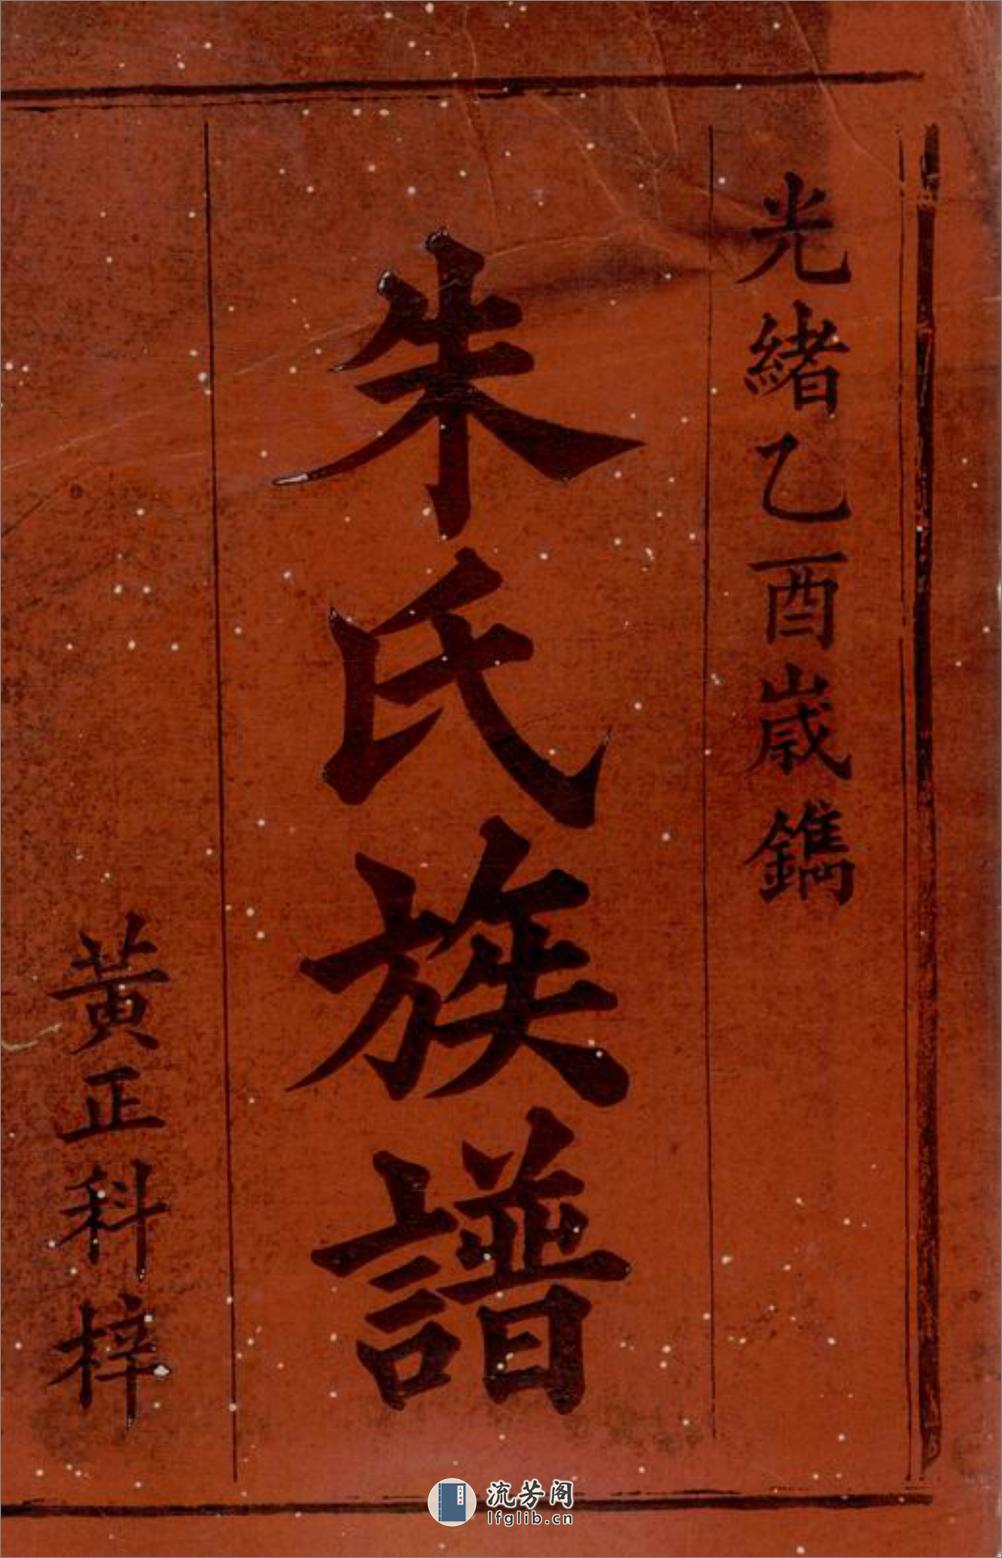 光緒乙酉歲鐫
朱氏族譜
黃正科梓
流芳阁
lfglib.cn